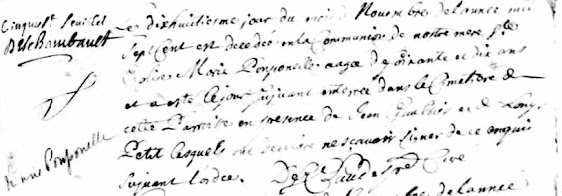 Cinquist. feuillet
De le Bambault
Le dixhuitiesme jour du mois de Novembre de l'année mil
sept cent est decedée en la Communion de nostre mere Ste
Eglise Marie Ponponelle aagée de soixante et dix ans
et a esté le jour suivant interrée dans le Cimetiere de
cette Paroisse en presence de Jean Gaultier et de Louys
Petit lesquels ont declaré ne scavoir signer de ce enquis
suivant l'ordce.
Marie Ponponelle
de l'année